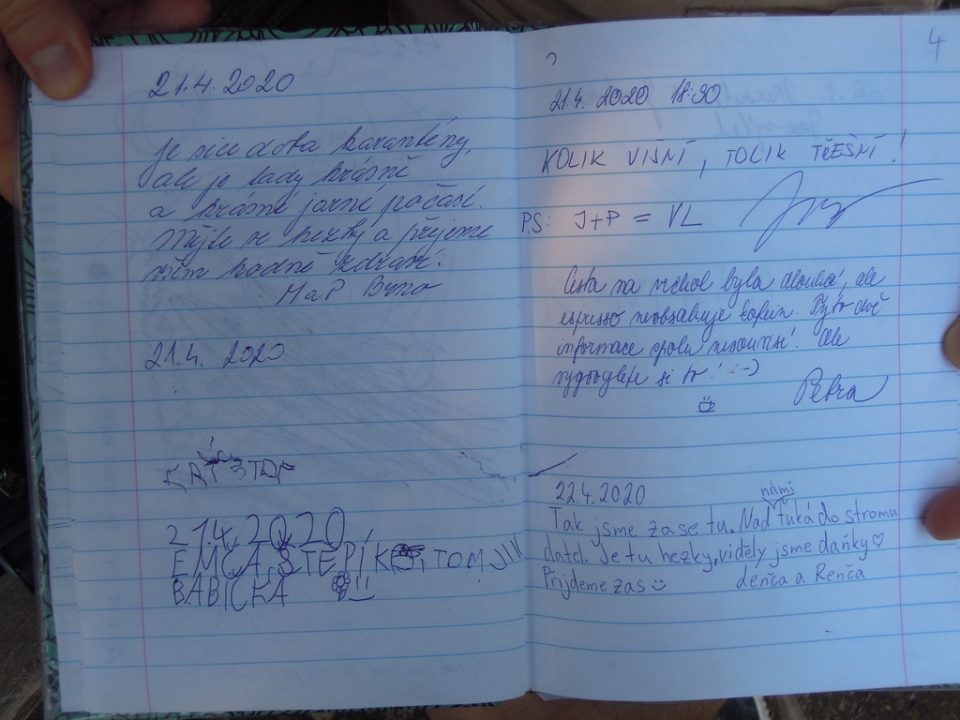 21.4.2020
Je sice doba karantény,
ale je tady krásně
a krásné jarní počasí.
Mějte se hezky a přejeme
všem hodně zdraví.
M a P Brno
21.4. 2020
21.4.2020
EMČA, ŠTĚPÍK, TOM
BABIČKA
4
21.4. 2020 18:30
KOLIK VIŠNÍ, TOLIK TŘEŠNÍ!
P.S: J+P = VL
Cesta na vrchol byla dlouhá, ale
espresso neobsahuje kofein. Tyto dvě
informace spolu nesouvisí! Ale
vygooglete si to! :-)
Petra
22.4.2020
námi
Tak jsme zase tu. Nad ťuká do stromu
datel. Je tu hezky, viděly jsme daňky♡
Přijdeme zas
Lenča a Renča